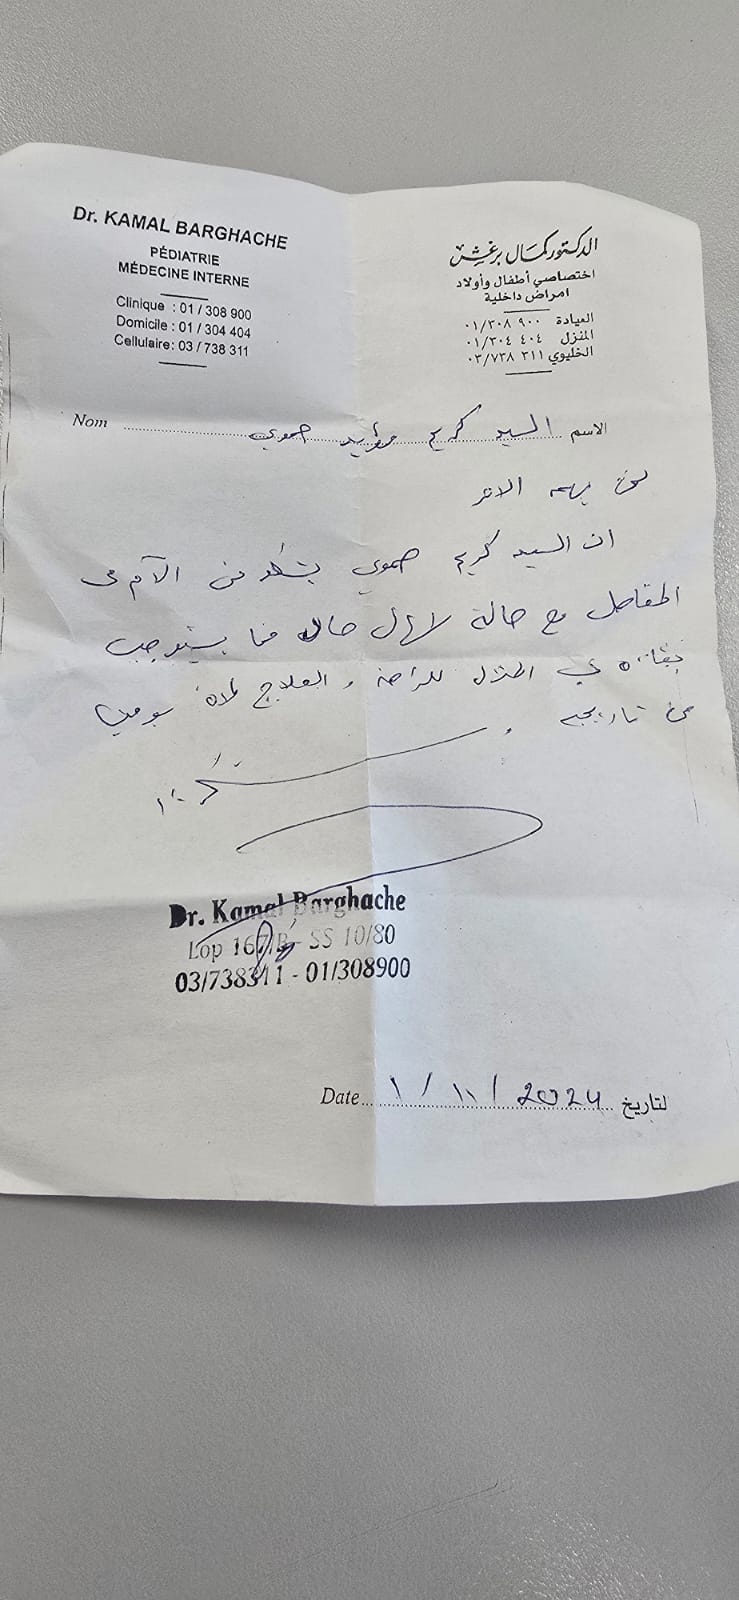 Dr. KAMAL BARGHACHE
PÉDIATRIE
MÉDECINE INTERNE
Clinique : 01 / 308 900
Domicile : 01 / 304 404
Cellulaire: 03 / 738 311
الدكتور كمال برغش
اختصاصي أطفال وأولاد
امراض داخلية
العيادة ٠١/٣٠٨ ٩٠٠
المنزل ٠١/٣٠٤ ٤٠٤
الخليوي ٠٣/٧٣٨ ٣١١
Nom السيد كريم مؤيد حموي الاسم
لمن يهمه الامر
ان السيد كريم حموي يشكو من الآم في
المفاصل مع حالة اسهال حاد مما يستوجب
بقائه في المنزل للراحة و العلاج لمدة يومين
من تاريخه
Dr. Kamal Barghache
Lop 167/B - SS 10/80
03/738311 - 01/308900
Date ١ / ١١ / 2024 لتاريخ